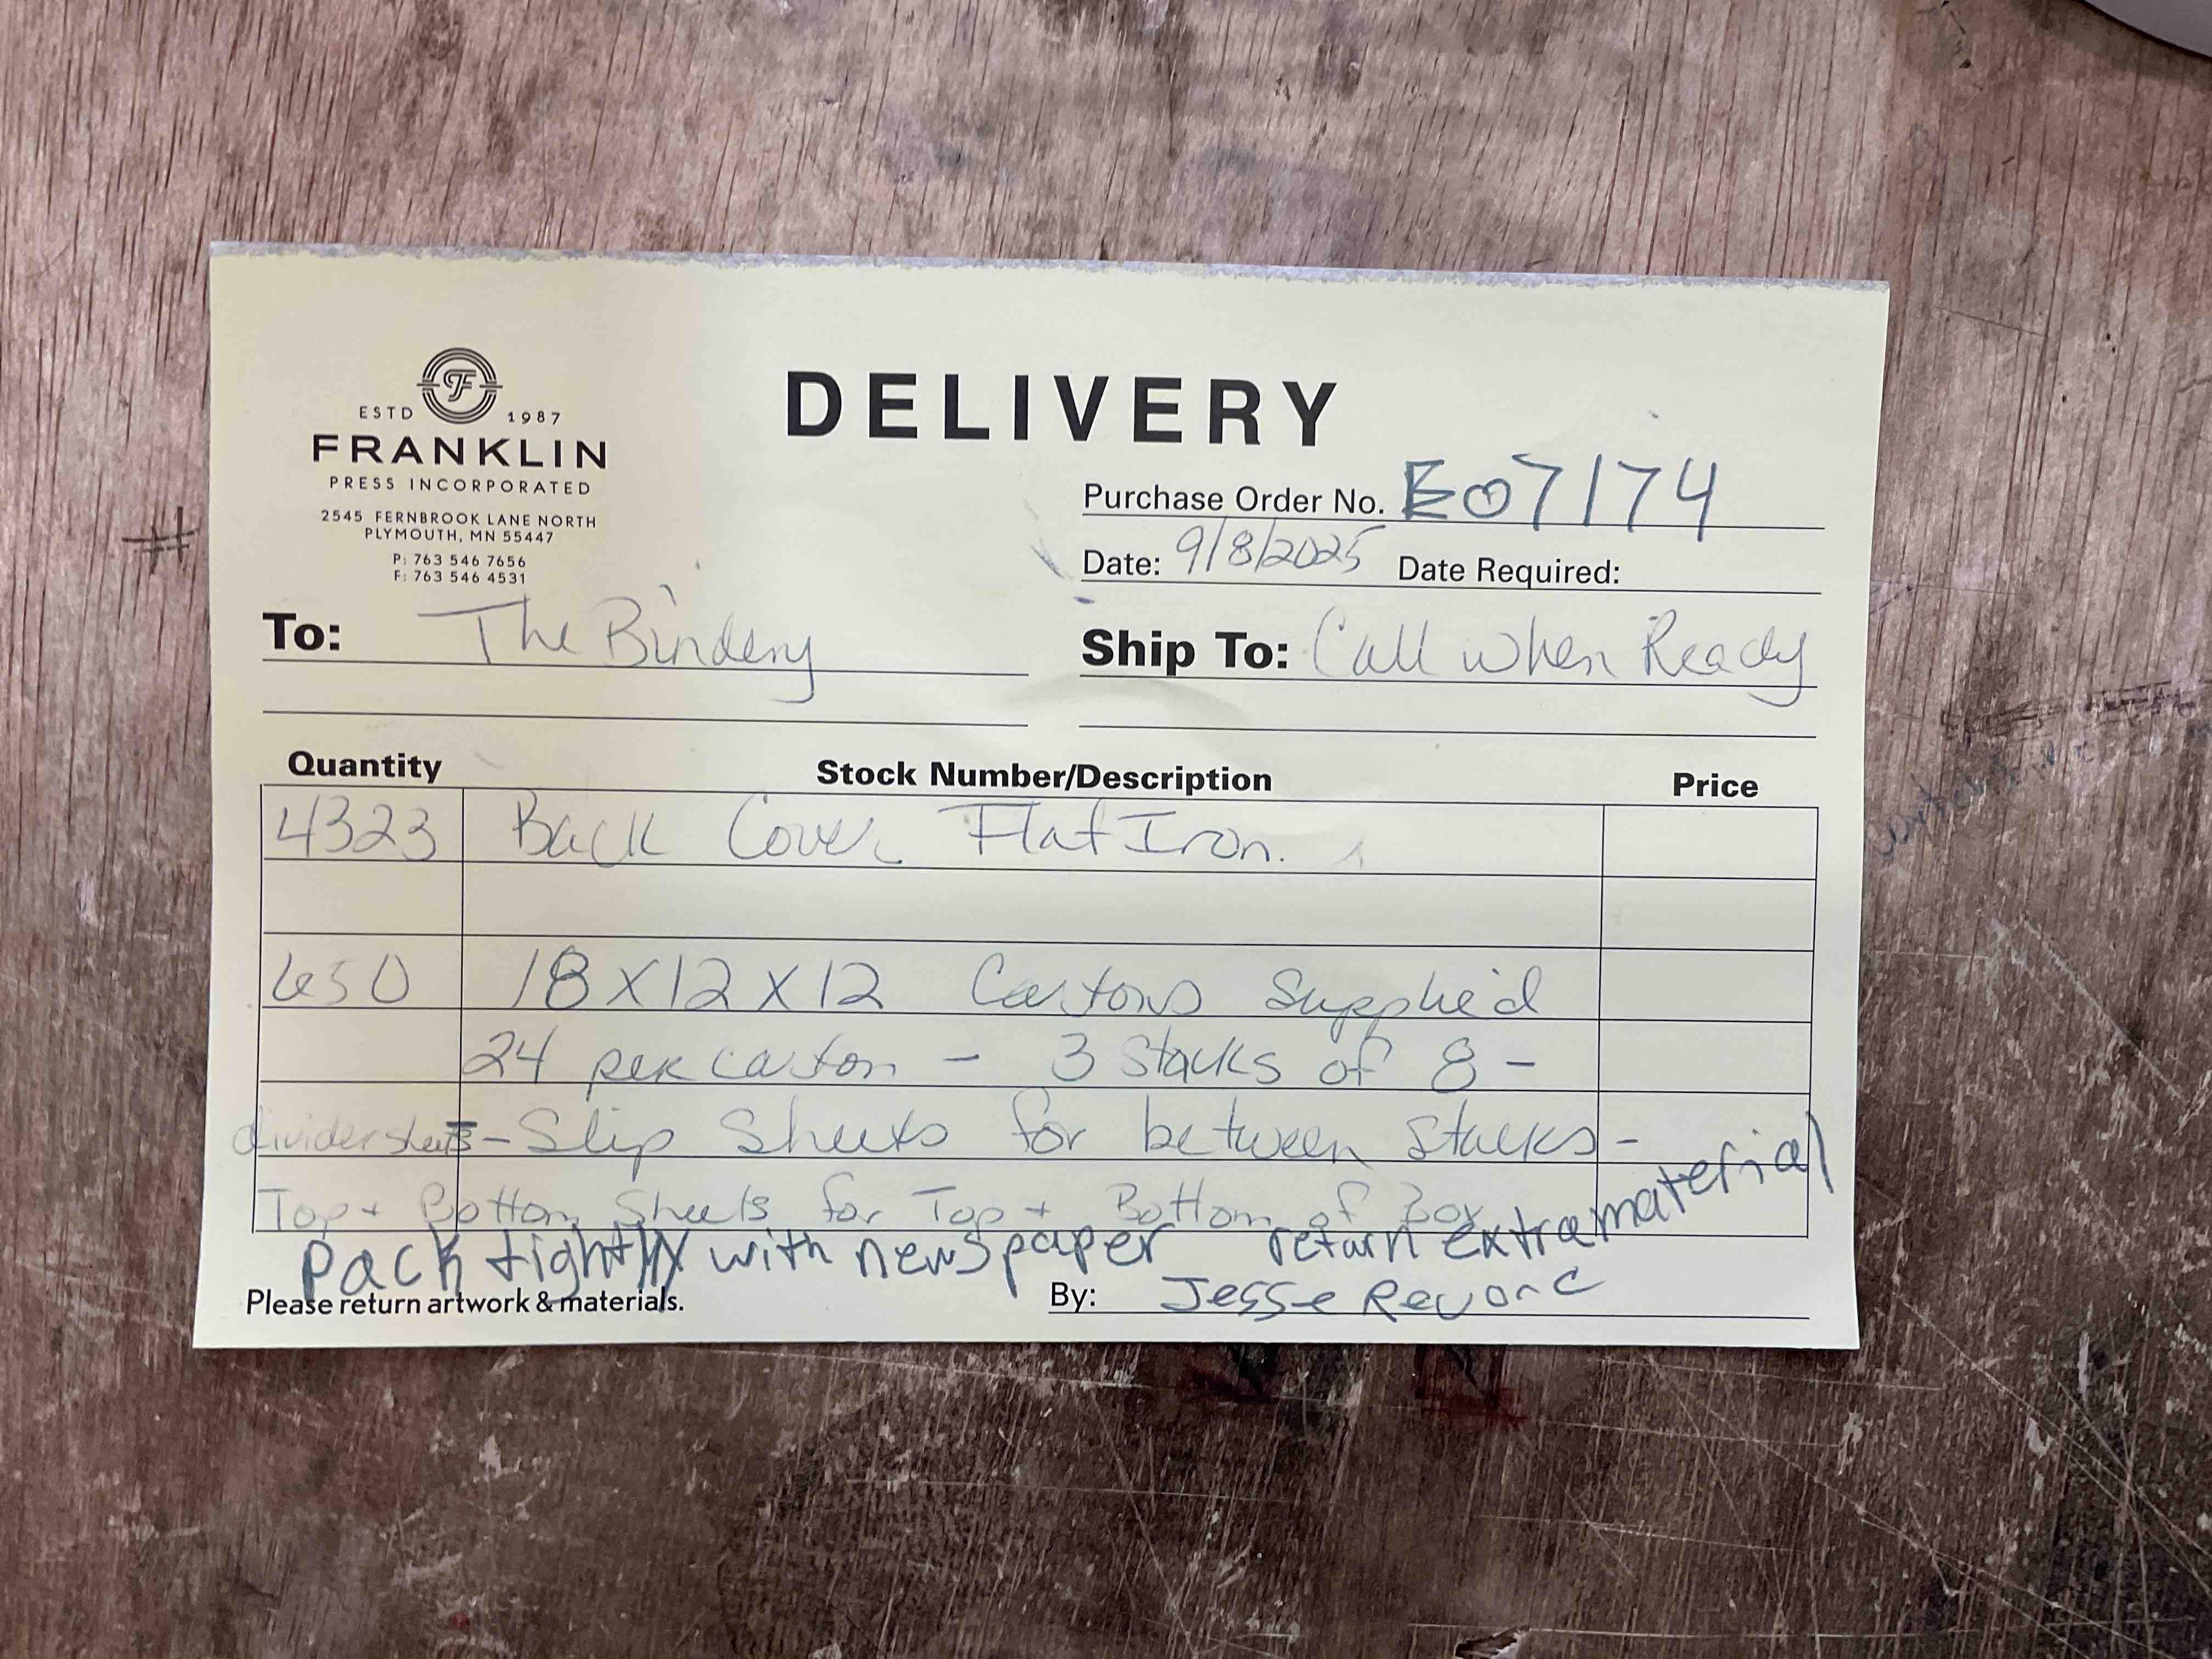 ESTD 1987
FRANKLIN
PRESS INCORPORATED
2545 FERNBROOK LANE NORTH
PLYMOUTH, MN 55447
P: 763 546 7656
F: 763 546 4531
DELIVERY
Purchase Order No. E07174
Date: 9/8/2025 Date Required:
To: The Bindery
Ship To: Call when Ready
Quantity Stock Number/Description Price
4323 Back Cover Flat Iron.
650 18 X 12 X 12 Cartons Supplied
24 per carton - 3 Stacks of 8 -
divider sheets - Slip Sheets for between Stacks -
Top + Bottom Sheets for Top + Bottom of Box
Pack tightly with newspaper return extra material
Please return artwork & materials. By: Jesse
#